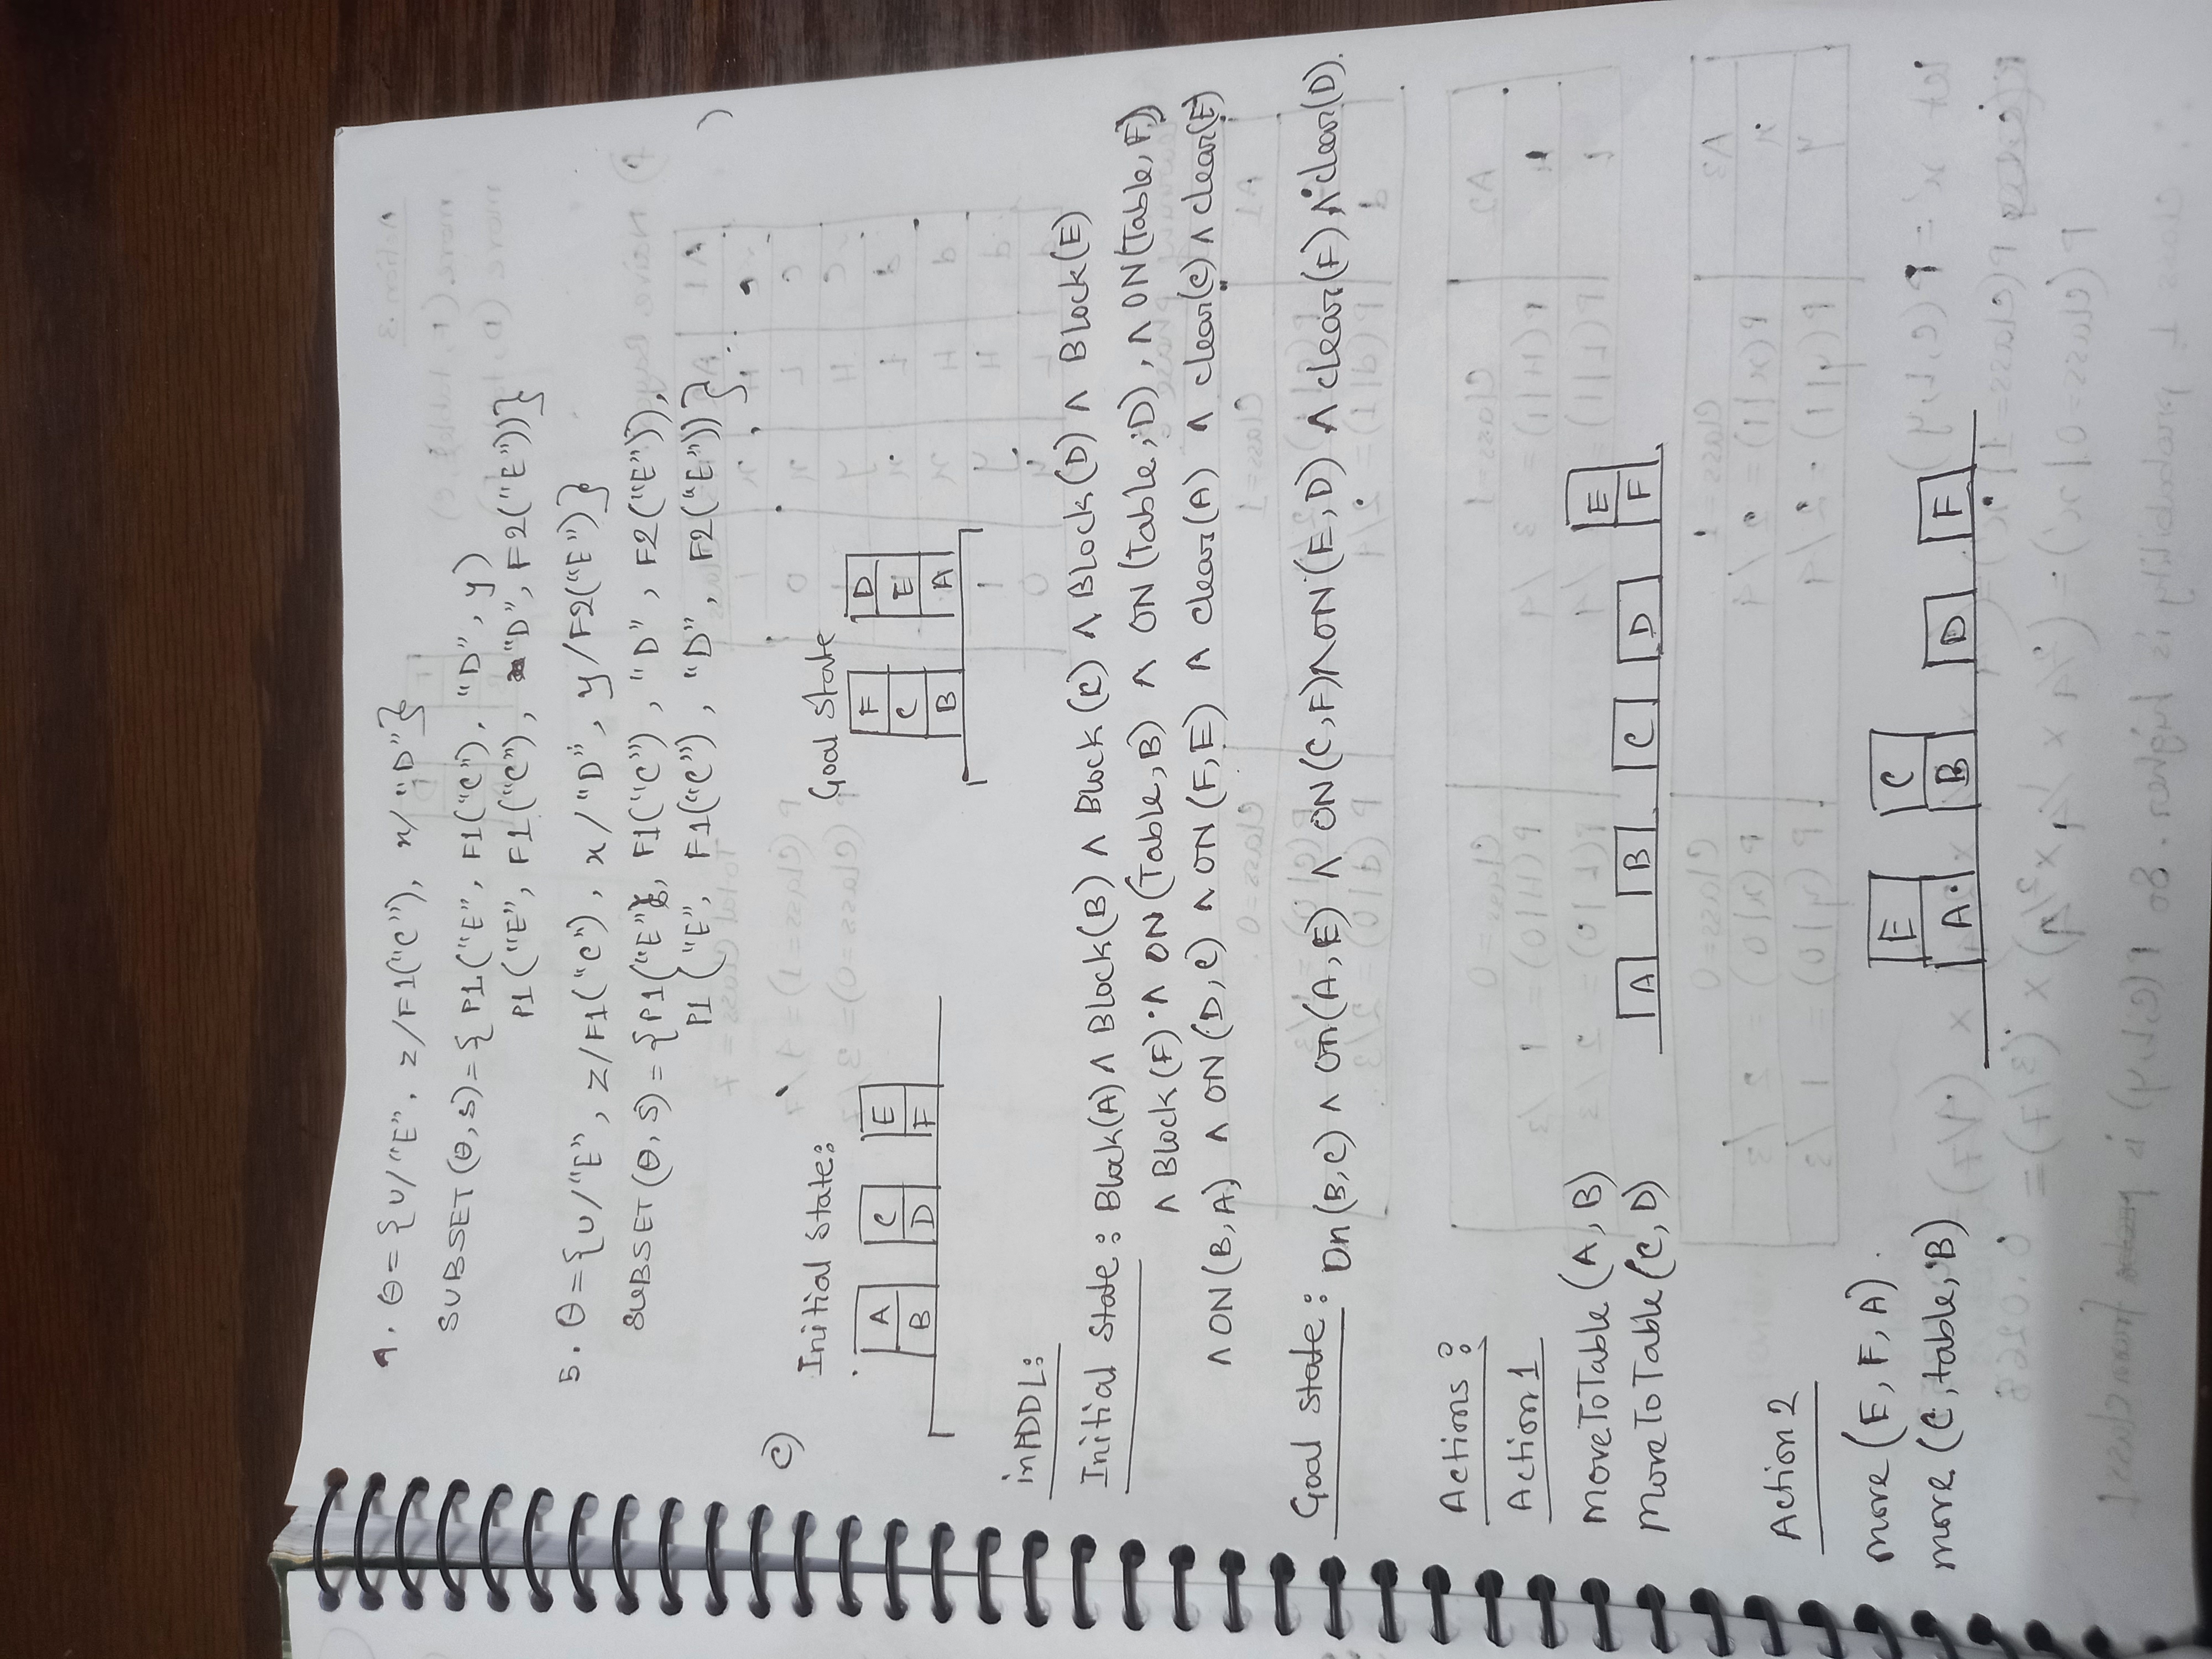 4. θ = {u/"E", z/F1("C"), x/"D"}
SUBSET(θ, S) = { P1("E", F1("C"), "D", y)
P1("E", F1("C"), "D", F2("E"))}
5. θ = {u/"E", z/F1("C"), x/"D", y/F2("E")}
SUBSET(θ, S) = {P1("E", F1("C"), "D", F2("E")),
P1("E", F1("C"), "D", F2("E"))}
c)
Initial State: Goal State
A C E F D
B D F C E
B A
in PDDL:
Initial State: Block(A) ∧ Block(B) ∧ Block(C) ∧ Block(D) ∧ Block(E)
∧ Block(F) ∧ ON(Table, B) ∧ ON(Table, D), ∧ ON(Table, F)
∧ ON(B, A) ∧ ON(D, C) ∧ ON(F, E) ∧ clear(A) ∧ clear(C) ∧ clear(E)
Goal State: On(B, C) ∧ On(A, E) ∧ ON(C, F) ∧ ON(E, D) ∧ clear(F) ∧ clear(D).
Actions:
Action 1
MoveToTable(A, B)
MoveToTable(C, D)
E
A B C D F
Action 2
move(E, F, A).
move(C, table, B)
E C
A B D F